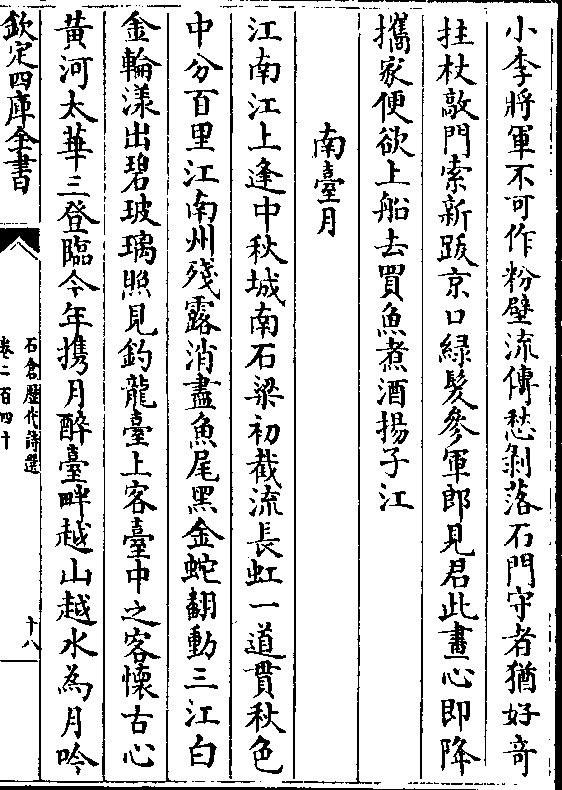 小李將軍不可作粉壁流傳愁剝落石門守者猶好竒
拄杖敲門索新跋京口緑髪參軍郎見君此畫心即降
攜家便欲上船去買魚煮酒揚子江
南臺月
江南江上逢中秋城南石梁初截流長虹一道貫秋色
中分百里江南州殘露消盡魚尾黑金蛇翻動三江白
金輪漾出碧玻璃照見釣龍臺上客臺中之客懷古心
黄河太華三登臨今年携月醉臺畔越山越水為月吟
欽定四庫全書
石倉歷代詩選
卷二百四十
十八